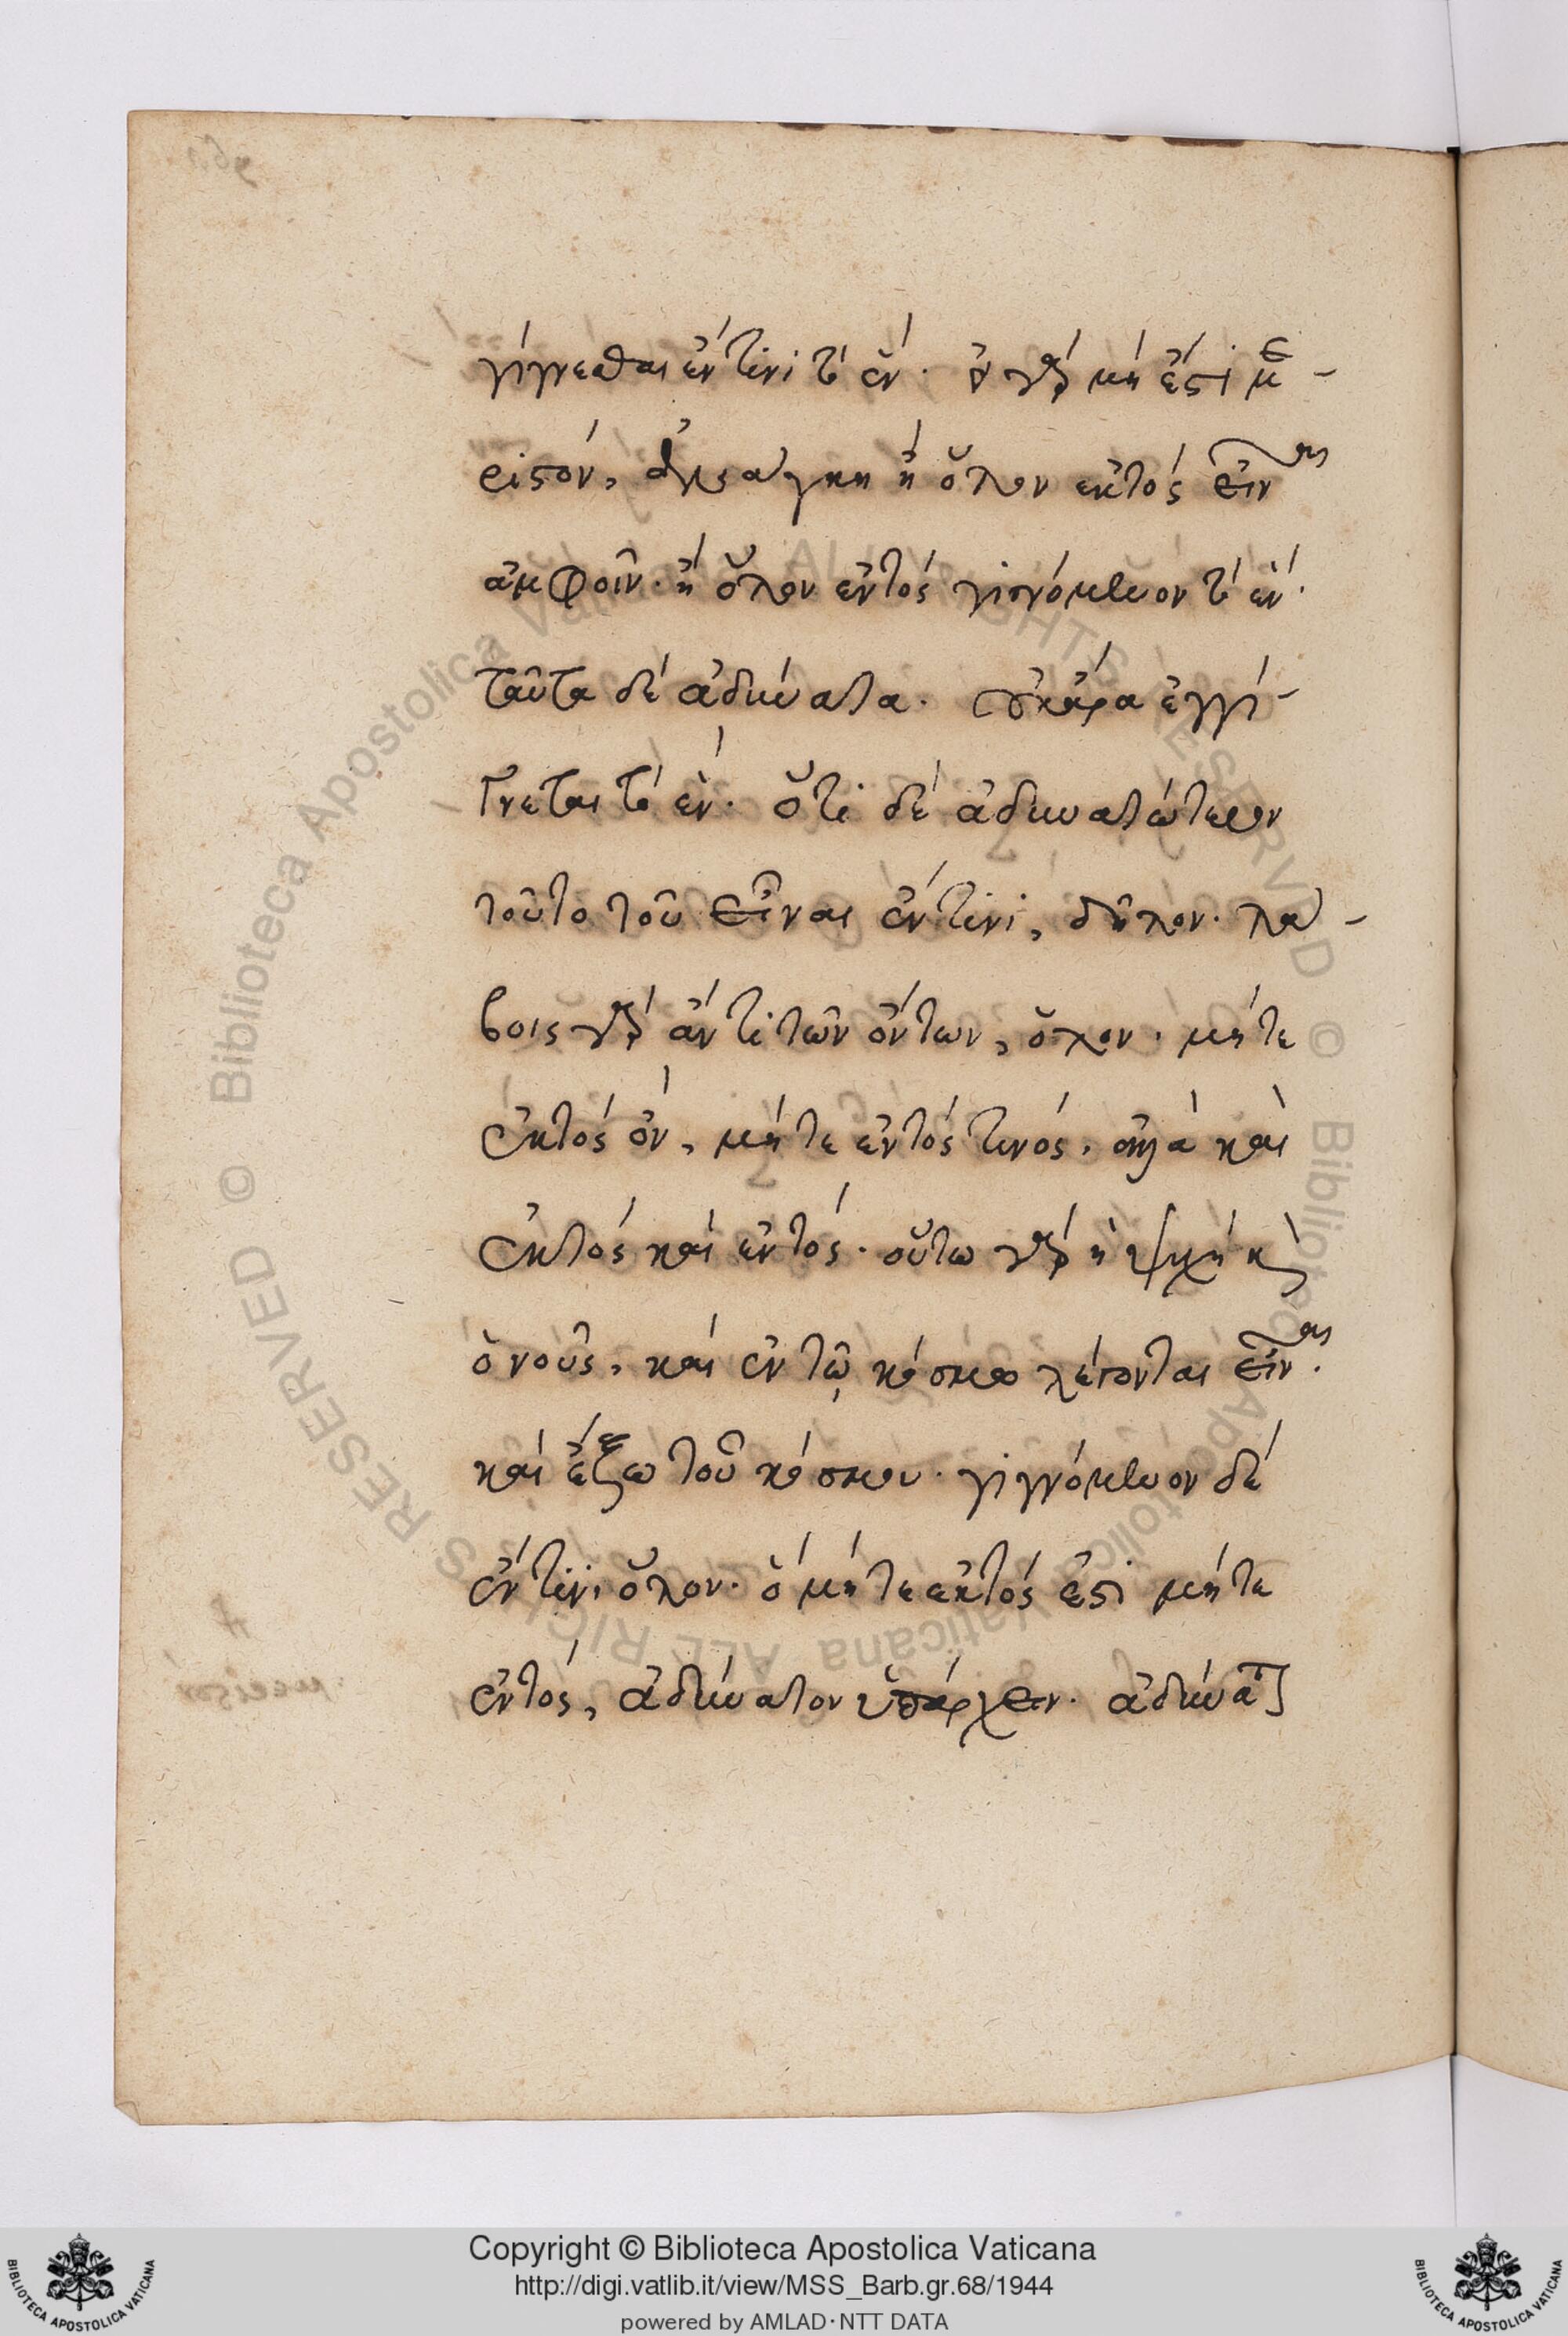 γίγνεσθαι ἐν τινὶ τὸ ἕν. ὃ γὰρ μή ἐστι με-
ριστόν, ἀνάγκη ἢ ὅλον ἐκτὸς εἶναι
ἀμφοῖν. ἢ ὅλον ἐντός γιγνόμενον τὸ ἕν.
ταῦτα δὲ ἀδύνατα. οὐκ ἄρα ἐγγί-
γνεται τὸ ἕν. ὅτι δὲ ἀδυνατώτερον
τοῦτο τοῦ εἶναι ἔν τινι, δῆλον. λά-
βοις γὰρ ἄν τι τῶν ὄντων, ὅλον. μήτε
ἐκτός ὄν, μήτε ἐντός τινός. ἀλλὰ καὶ
ἐκτός καί ἐντός. οὕτω γάρ ἡ ψυχή κ
ὁ νοῦς, καί ἐν τῷ κόσμω λέγονται εἶναι.
καί ἔξω τοῦ κόσμου. γιγνόμενον δέ
ἔν τινι ὅλον. ὅ μήτε ἐκτός ἐστι μήτε
ἐντός, ἀδύνατον ὑπάρχειν. ἀδύνατ]
Copyright © Biblioteca Apostolica Vaticana
http://digi.vatlib.it/view/MSS_Barb.gr.68/1944
powered by AMLAD·NTT DATA
BIBLIOTECA APOSTOLICA VATICANA
BIBLIOTECA APOSTOLICA VATICANA
© Biblioteca Apostolica Vaticana ALL RIGHTS RESERVED © Biblioteca Apostolica Vaticana ALL RIGHTS RESERVED